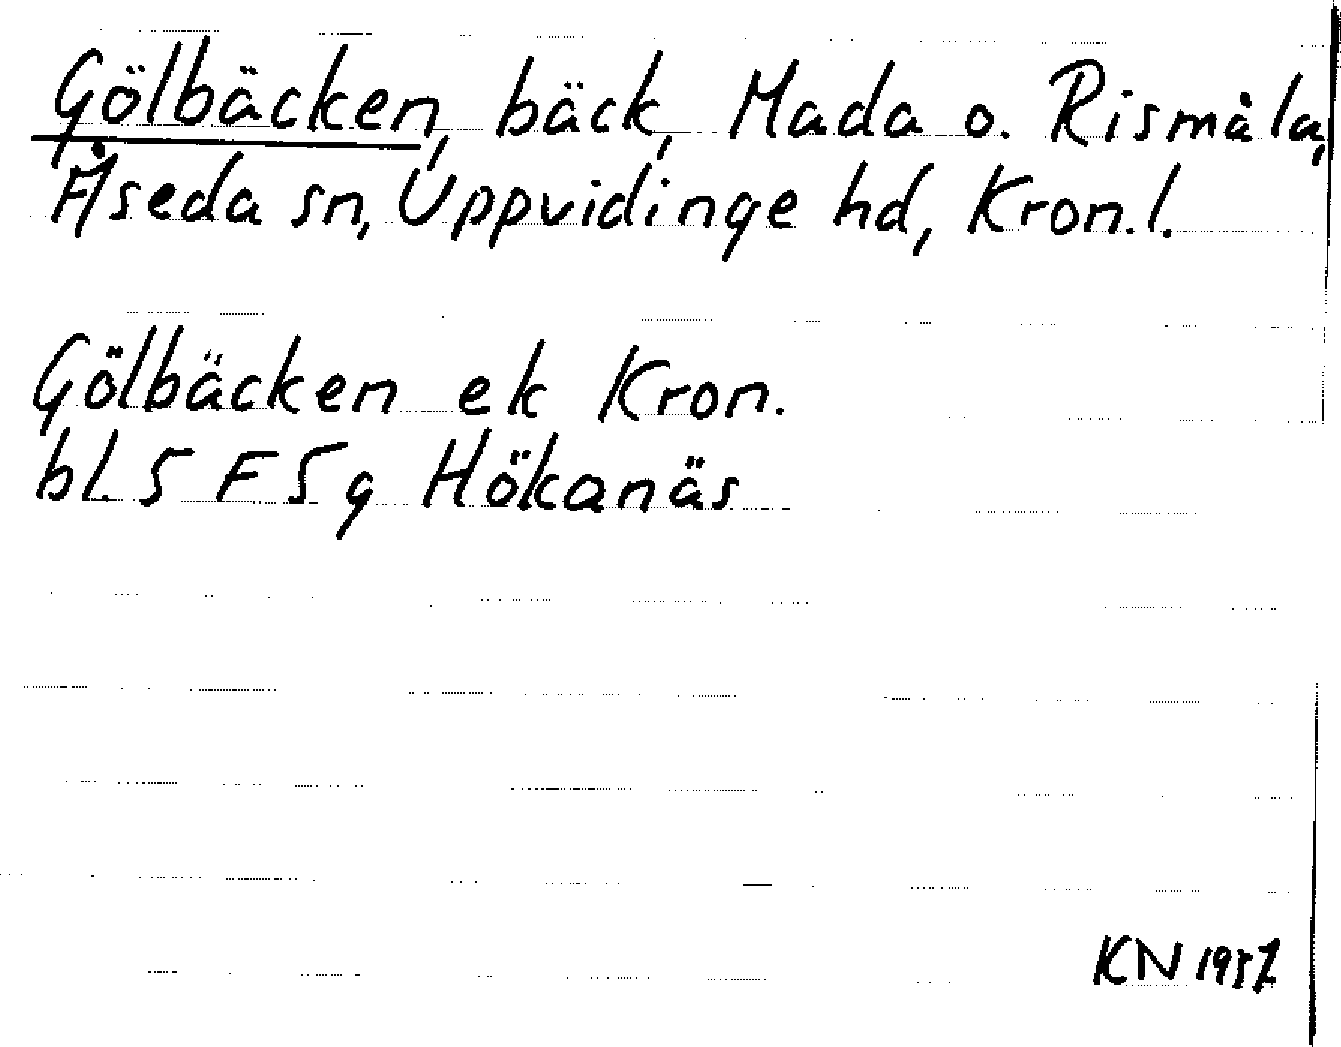 Gölbäcken, bäck, Mada o. Rismåla,
Åseda sn, Uppvidinge hd, Kron.l.
Gölbäcken ek Kron.
bl. 5 F 5 g Hökanäs
KN 1957